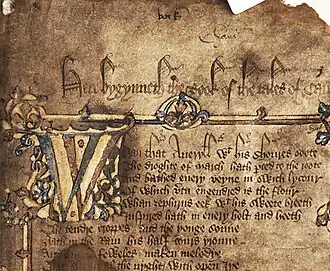 Here bygynneth the Book of the tales of Cau
Whan that Aueryƚƚ wt his shoures soote
The droghte of march hath pced to the roote
And bathed euery veyne in swich lycour
Of which vtu engendred is the flour
Whan zephirus eek wt his sweete breeth
Inspired hath in euery holt and heeth
The tendre croppes and the yonge sonne
Hath in the Ram his half cours yronne
And smale foweles maken melodye
al the nyght with open Iye